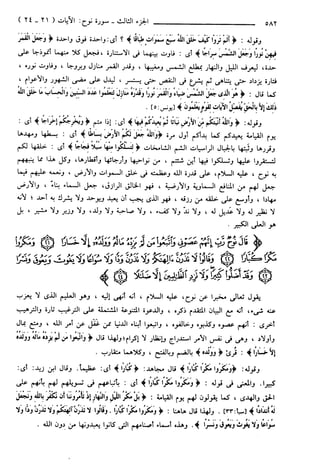 ٥٨٢ الجزء الثالث - سورة نوح: الآيات (٢١ - ٢٤)
وقوله : ﴿ ألم تروا كيف خلق الله سبع سموات طباقًا ﴾ ؟ أي : واحدة فوق واحدة ﴿ وجعل القمر
فيهن نورًا وجعل الشمس سراجًا ﴾ أي : فاوت بينهما في الاستنارة ، فجعل كلا منهما أنموذجا على
حدة، ليعرف الليل والنهار بمطلع الشمس ومغيبها ، وقدر القمر منازل وبروجا ، وفاوت نوره ،
فتارة يزداد حتى يتناهى ثم يشرع في النقص حتى يستسر ، ليدل على مضي الشهور والأعوام ،
كما قال : ﴿ هو الذي جعل الشمس ضياء والقمر نورا وقدره منازل لتعلموا عدد السنين والحساب ما خلق الله
ذلك إلا بالحق يفصل الآيات لقوم يعلمون ﴾ [يونس: ٥] .
وقوله : ﴿ والله أنبتكم من الأرض نباتًا ثم يعيدكم فيها ﴾ أي : إذا متم ﴿ ويخرجكم إخراجًا ﴾ أي :
يوم القيامة يعيدكم كما بدأكم أول مرة ﴿ والله جعل لكم الأرض بساطًا ﴾ أي : بسطها ومهدها
وقررها وثبتها بالجبال الراسيات الشم الشامخات ﴿ لتسلكوا منها سبلاً فجاجًا ﴾ أي : خلقها لكم
لتستقروا عليها وتسلكوا فيها أين شئتم ، من نواحيها وأرجائها وأقطارها، وكل هذا مما ينبههم
به نوح ، عليه السلام، على قدرة الله وعظمته في خلق السموات والأرض ، ونعمه عليهم فيما
جعل لهم من المنافع السماوية والأرضية ، فهو الخالق الرازق، جعل السماء بناءً ، والأرض
مهادا ، وأوسع على خلقه من رزقه ، فهو الذي يجب أن يعبد ويوحد ولا يشرك به أحد ؛ لأنه
لا نظير له ولا عديل له ، ولا ند ولا كفء، ولا صاحبة ولا ولد، ولا وزير ولا مشير ، بل
هو العلي الكبير .
يقول تعالى مخبرا عن نوح، عليه السلام ، أنه أنهى إليه ، وهو العليم الذي لا يعزب
عنه شيء، أنه مع البيان المتقدم ذكره ، والدعوة المتنوعة المشتملة على الترغيب تارة والترهيب
أخرى : أنهم عصوه وكذبوه وخالفوه ، واتبعوا أبناء الدنيا ممن غفل عن أمر الله ، ومتع بمال
وأولاد ، وهي في نفس الأمر استدراج وإنظار لا إكرام؛ ولهذا قال ﴿ واتبعوا من لم يزده ماله وولده
إلا خسارًا ﴾ : قرئ ﴿ وولده ﴾ بالضم وبالفتح ، وكلاهما متقارب .
وقوله: ﴿ ومكروا مكرًا كبارًا ﴾ قال مجاهد: ﴿ كبارًا ﴾ أي : عظيماً. وقال ابن زيد: أي:
كبيرا. والمعنى في قوله : ﴿ ومكروا مكرًا كبارًا ﴾ أي : بأتباعهم في تسويلهم لهم بأنهم على
الحق والهدى ، كما يقولون لهم يوم القيامة : ﴿ بل مكر الليل والنهار إذ تأمروننا أن نكفر بالله ونجعل
له أندادا ﴾ [سبأ:٣٣] . ولهذا قال هاهنا : ﴿ ومكروا مكرًا كبارًا . وقالوا لا تذرن آلهتكم ولا تذرن ودًا ولا
سواعًا ولا يغوث ويعوق ونسرًا ﴾. وهذه أسماء أصنامهم التي كانوا يعبدونها من دون الله .